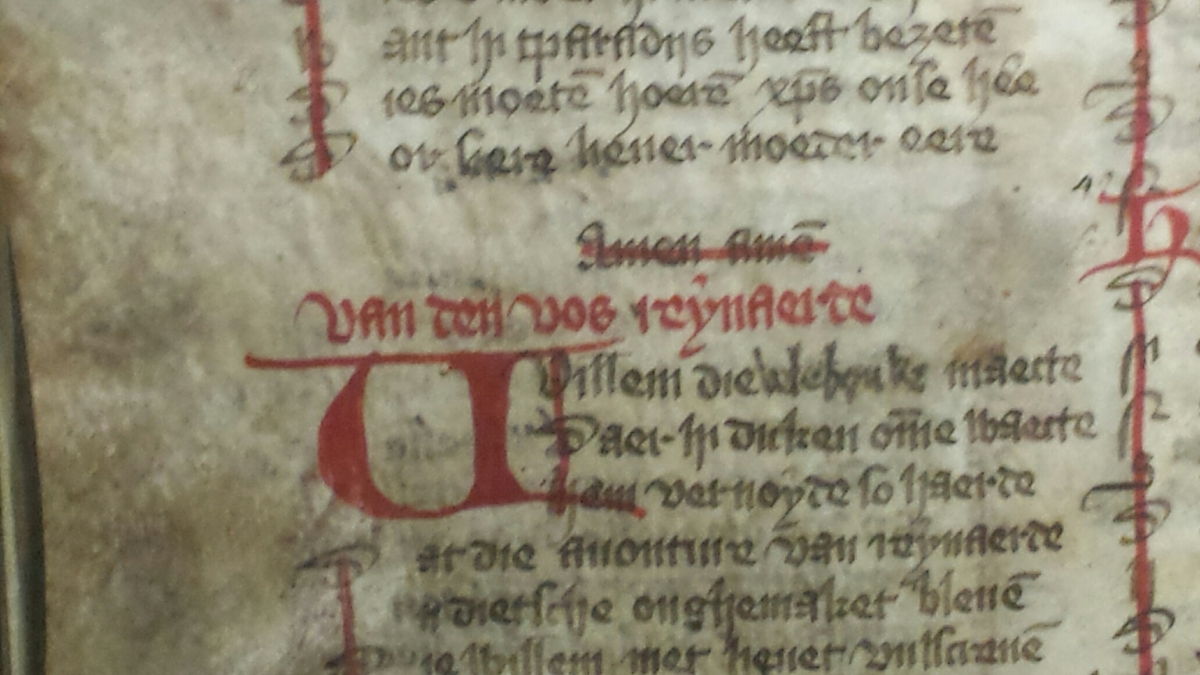 ant hi tparadijs heeft bezetē
ies moetē hoerē xp̄s onse hēe
or lieuer moeder eere
Amen amē
van den vos reynaerde
Willem die vele bouke maecte
Daer hi dicken om̄e waecte
hem vernoyde so haerde
at die auonture van reynaerde
n dietsche onghemaket bleuē
ie willem niet heuet vulscreuē